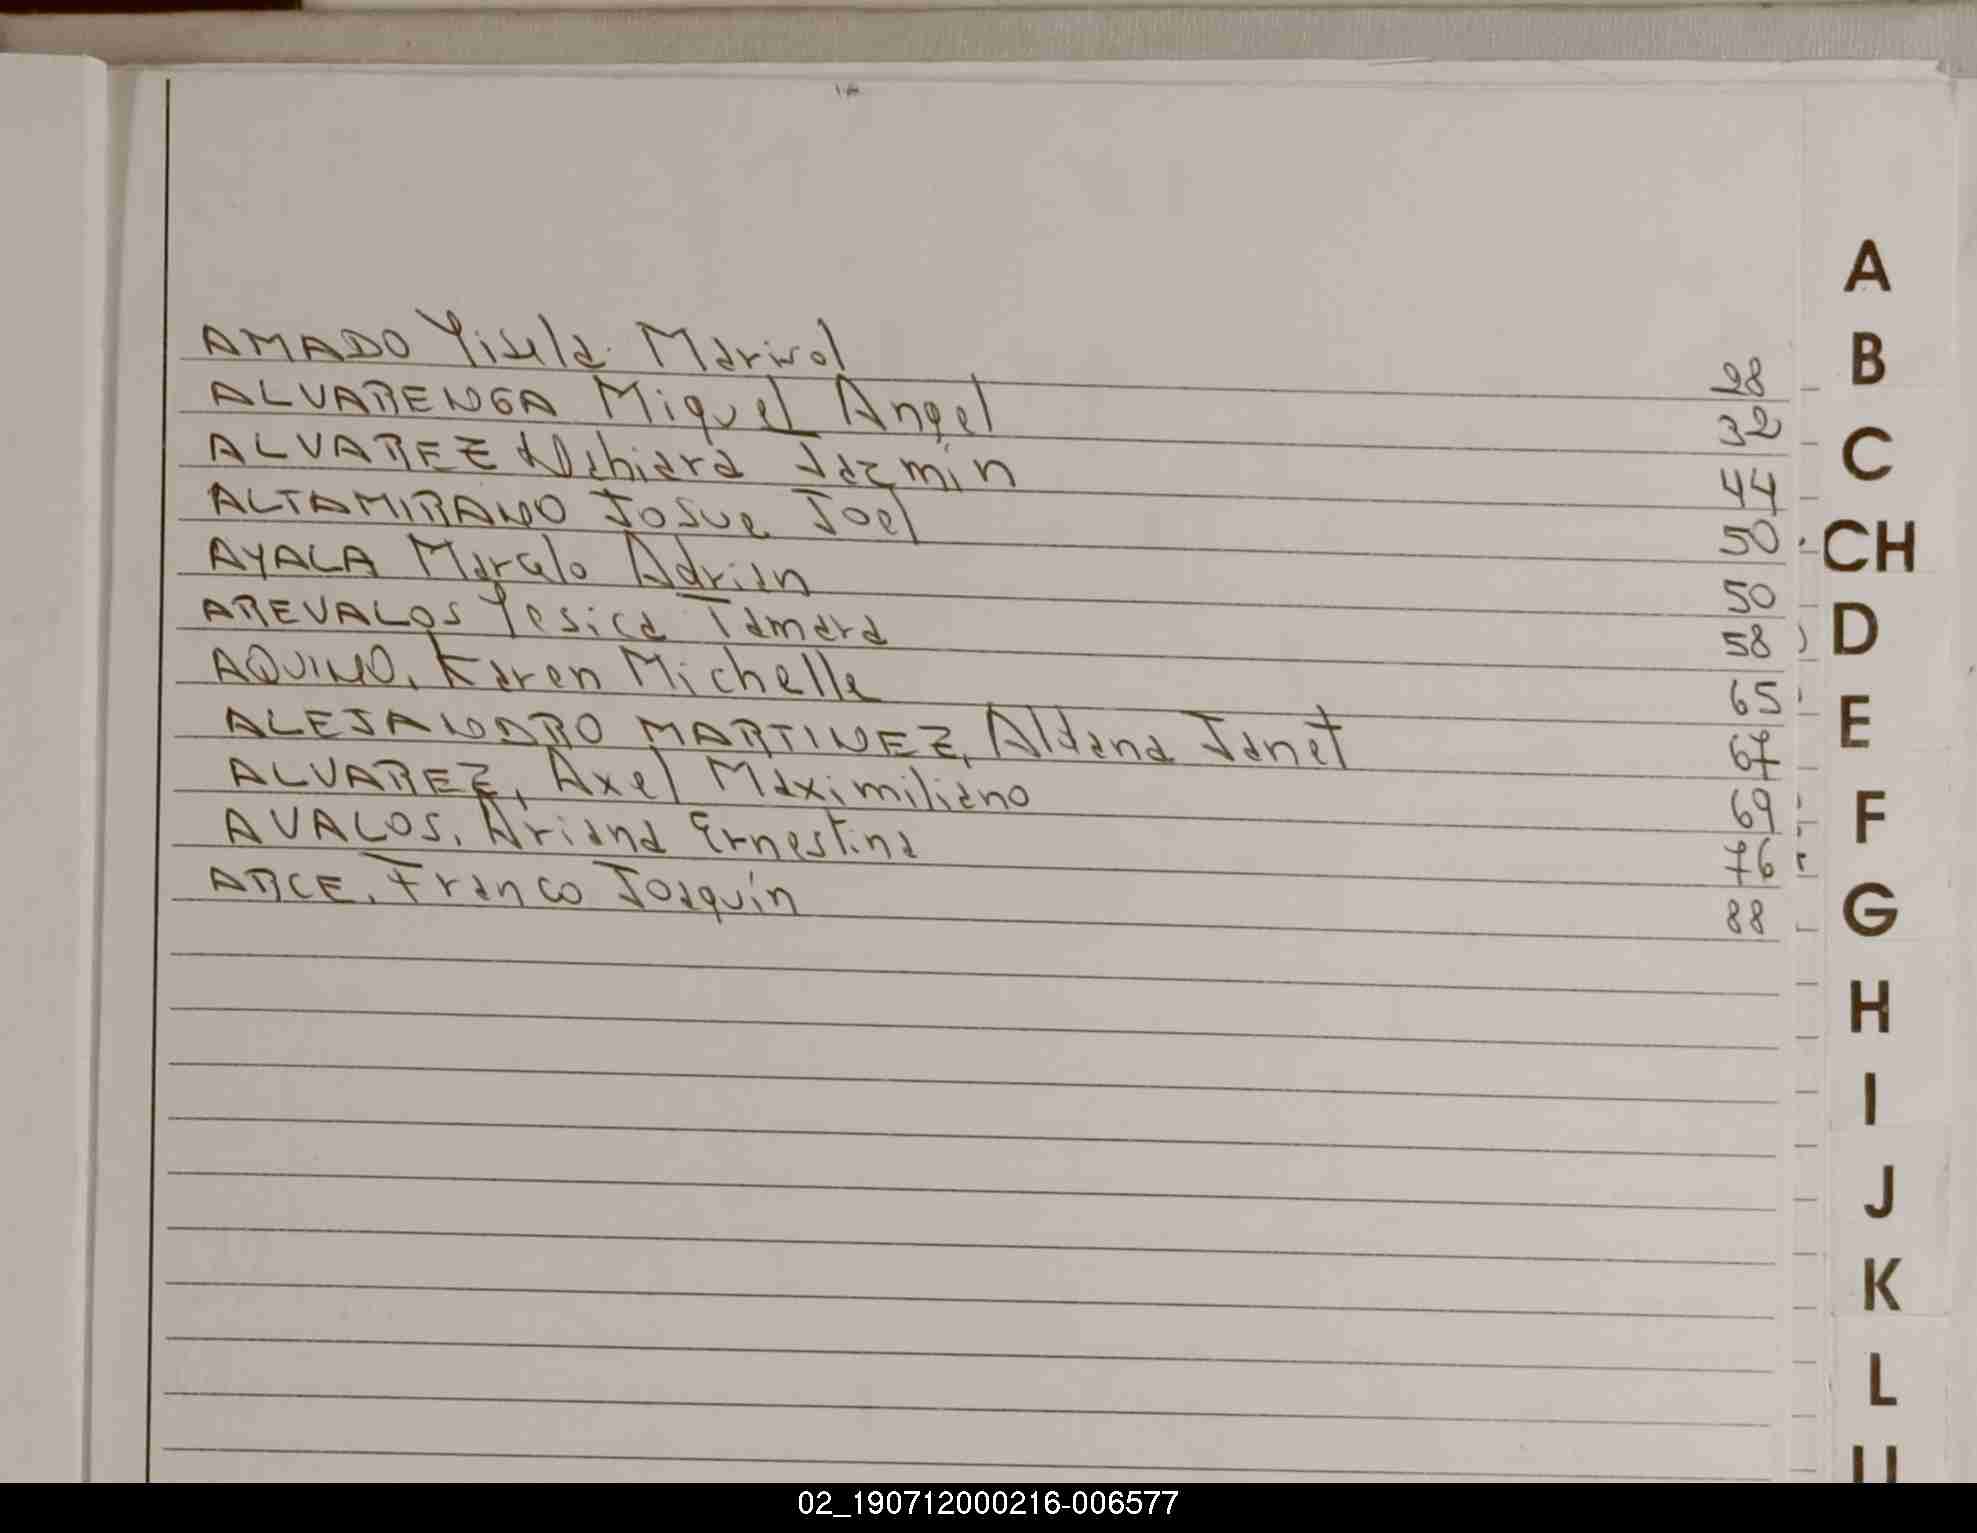 AMADO Yisela Marisol 28
ALVARENGA Miguel Angel 32
ALVAREZ Nahiara Jazmín 44
ALTAMIRANO Josue Joel 50
AYALA Marcelo Adrian 50
AREVALOS Yesica Tamara 58
AQUINO, Karen Michelle 65
ALEJANDRO MARTINEZ, Aldana Janet 67
ALVAREZ, Axel Maximiliano 69
AVALOS, Ariana Ernestina 76
ARCE, Franco Joaquín 88
A
B
C
CH
D
E
F
G
H
I
J
K
L
02_190712000216-006577